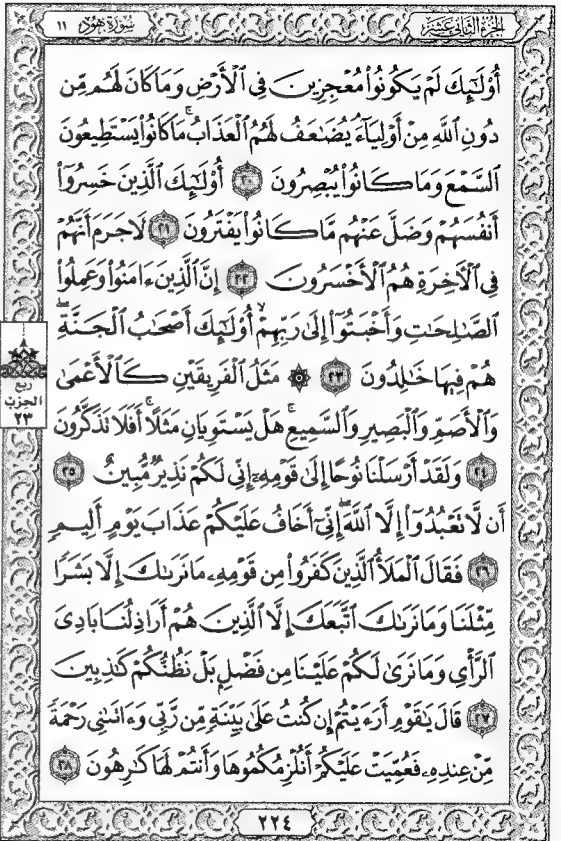 الجزء الثاني عشر
سورة هود ١١
أُوْلَـٰٓئِكَ لَمْ يَكُونُوا۟ مُعْجِزِينَ فِى ٱلْأَرْضِ وَمَا كَانَ لَهُم مِّن
دُونِ ٱللَّهِ مِنْ أَوْلِيَآءَ يُضَـٰعَفُ لَهُمُ ٱلْعَذَابُ ۚ مَا كَانُوا۟ يَسْتَطِيعُونَ
ٱلسَّمْعَ وَمَا كَانُوا۟ يُبْصِرُونَ ٢٠ أُوْلَـٰٓئِكَ ٱلَّذِينَ خَسِرُوٓا۟
أَنفُسَهُمْ وَضَلَّ عَنْهُم مَّا كَانُوا۟ يَفْتَرُونَ ٢١ لَا جَرَمَ أَنَّهُمْ
فِى ٱلْـَٔاخِرَةِ هُمُ ٱلْأَخْسَرُونَ ٢٢ إِنَّ ٱلَّذِينَ ءَامَنُوا۟ وَعَمِلُوا۟
ٱلصَّـٰلِحَـٰتِ وَأَخْبَتُوٓا۟ إِلَىٰ رَبِّهِمْ أُوْلَـٰٓئِكَ أَصْحَـٰبُ ٱلْجَنَّةِ ۖ
هُمْ فِيهَا خَـٰلِدُونَ ٢٣ ۞ مَثَلُ ٱلْفَرِيقَيْنِ كَٱلْأَعْمَىٰ
وَٱلْأَصَمِّ وَٱلْبَصِيرِ وَٱلسَّمِيعِ ۚ هَلْ يَسْتَوِيَانِ مَثَلًا ۚ أَفَلَا تَذَكَّرُونَ
٢٤ وَلَقَدْ أَرْسَلْنَا نُوحًا إِلَىٰ قَوْمِهِۦٓ إِنِّى لَكُمْ نَذِيرٌ مُّبِينٌ ٢٥
أَن لَّا تَعْبُدُوٓا۟ إِلَّا ٱللَّهَ ۖ إِنِّىٓ أَخَافُ عَلَيْكُمْ عَذَابَ يَوْمٍ أَلِيمٍ
٢٦ فَقَالَ ٱلْمَلَأُ ٱلَّذِينَ كَفَرُوا۟ مِن قَوْمِهِۦ مَا نَرَىٰكَ إِلَّا بَشَرًا
مِّثْلَنَا وَمَا نَرَىٰكَ ٱتَّبَعَكَ إِلَّا ٱلَّذِينَ هُمْ أَرَاذِلُنَا بَادِىَ
ٱلرَّأْىِ وَمَا نَرَىٰ لَكُمْ عَلَيْنَا مِن فَضْلٍۭ بَلْ نَظُنُّكُمْ كَـٰذِبِينَ
٢٧ قَالَ يَـٰقَوْمِ أَرَءَيْتُمْ إِن كُنتُ عَلَىٰ بَيِّنَةٍ مِّن رَّبِّى وَءَاتَىٰنِى رَحْمَةً
مِّنْ عِندِهِۦ فَعُمِّيَتْ عَلَيْكُمْ أَنُلْزِمُكُمُوهَا وَأَنتُمْ لَهَا كَـٰرِهُونَ ٢٨
ربع
الحزب
٢٣
٢٢٤